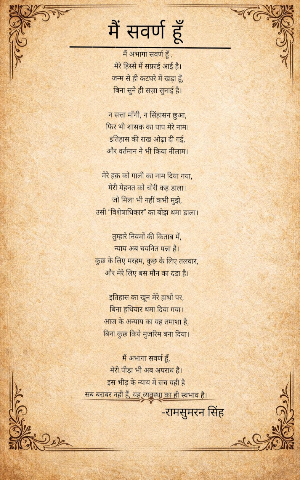 मैं सवर्ण हूँ
मैं अभागा सवर्ण हूँ,
मेरे हिस्से में सफ़ाई आई है।
जन्म से ही कटघरे में खड़ा हूँ,
बिना सुने ही सज़ा सुनाई है।
न सत्ता माँगी, न सिंहासन छुआ,
फिर भी शासक का पाप मेरे नाम।
इतिहास की राख ओढ़ा दी गई,
और वर्तमान ने भी किया नीलाम।
मेरे हक़ को गाली का नाम दिया गया,
मेरी मेहनत को चोरी कह डाला।
जो मिला भी नहीं कभी मुझे,
उसी “विशेषाधिकार” का बोझ थमा डाला।
तुम्हारे नियमों की किताब में,
न्याय अब चयनित पन्ना है।
कुछ के लिए मरहम, कुछ के लिए तलवार,
और मेरे लिए बस मौन का दंड है।
इतिहास का खून मेरे हाथों पर,
बिना हथियार थमा दिया गया।
आज के अन्याय का यह तमाशा है,
बिना कुछ किये मुजरिम बना दिया।
मैं अभागा सवर्ण हूँ,
मेरी पीड़ा भी अब अपराध है।
इस भीड़ के न्याय में सच यही है
सब बराबर नहीं हैं, यह व्यवस्था का ही स्वभाव है।
-रामसुमरन सिंह